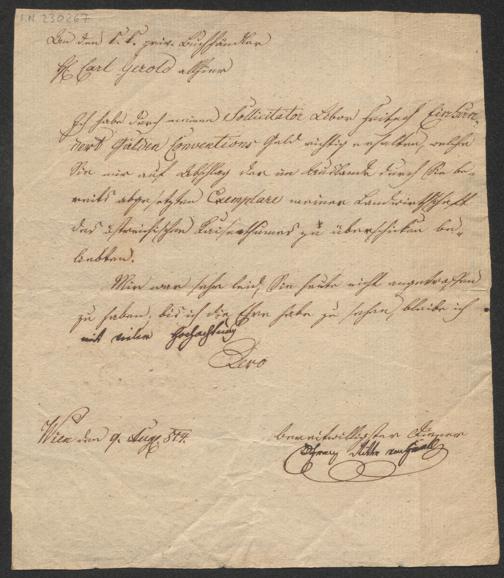 I.N. 230267
An den k. k. priv. Buchhändler
H. Carl Gerold allhier
Ich habe durch meinen Sollicitator Ein hun-
dert Gulden Conventions Geld richtig erhalten, welche
Sie mir auf Abschlag der im Auslande durch Sie be-
reits abgesetzten Exemplare meiner Landwirthschaft
des östreichischen Kaiserthumes zu überschicken be-
liebten.
Mir war sehr leid, Sie heute nicht angetroffen
zu haben, bis ich die Ehre habe zu sehen, bleibe ich
mit vieler Hochachtung
Dero
Wien den 9. Aug. 814.
bereitwilligster Diener
Ritter von